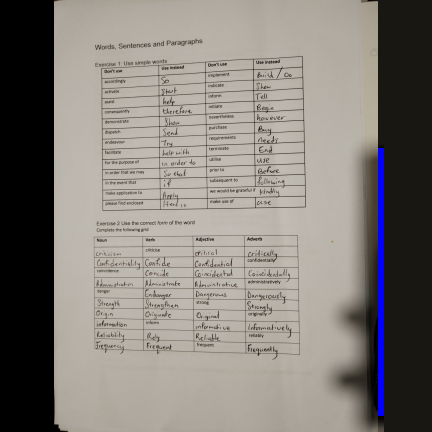 Words, Sentences and Paragraphs
Exercise 1: Use simple words
Don't use Use instead Don't use Use instead
accordingly So implement Build / Do
activate Start indicate Show
assist help inform Tell
consequently therefore initiate Begin
demonstrate Show nevertheless however
dispatch Send purchase Buy
endeavour Try requirements needs
facilitate help with terminate End
For the purpose of in order to utilise use
in order that we may So that prior to Before
in the event that if subsequent to following
make application to Apply we would be grateful if kindly
please find enclosed Here is make use of use
Exercise 2 Use the correct form of the word
Complete the following grid
Noun Verb Adjective Adverbs
criticism criticise critical critically
Confidentiality Confide Confidential confidentially
coincidence Coincide Coincidental Coincidentally
Administration Administrate Administrative administratively
danger Endanger Dangerous Dangerously
Strength Strengthen strong Strongly
Origin Originate Original originally
information inform informative Informatively
Reliability Rely Reliable reliably
Frequency Frequent frequent Frequently